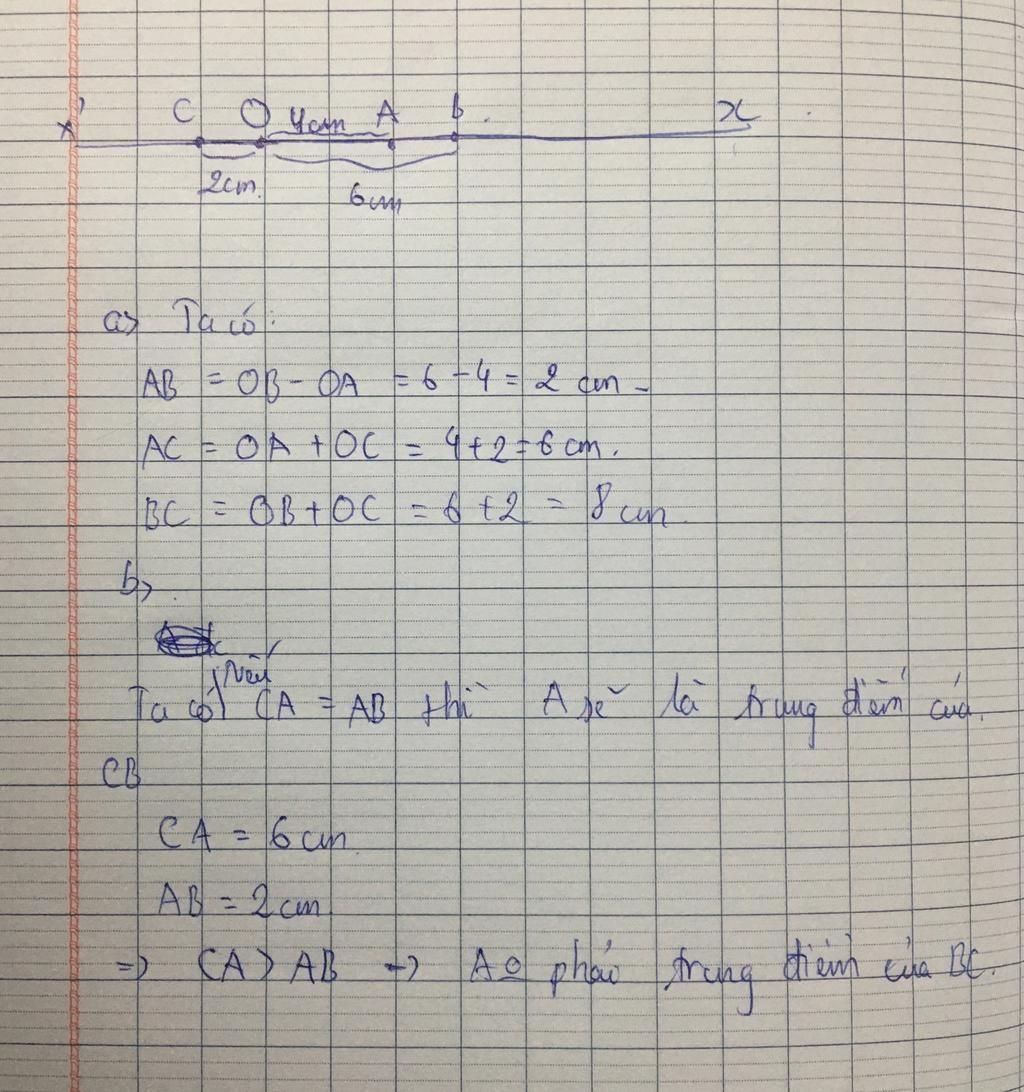 x' C O 4cm A B x
2cm 6cm
a> Ta có:
AB = OB - OA = 6 - 4 = 2 cm
AC = OA + OC = 4 + 2 = 6 cm.
BC = OB + OC = 6 + 2 = 8 cm
b>
nếu
Ta có CA = AB thì A sẽ là trung điểm của
CB
CA = 6 cm
AB = 2 cm
=> CA > AB -> A o phải trung điểm của BC.